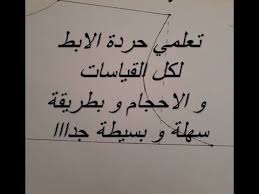 تعلمي حردة الابط
لكل القياسات
و الاحجام و بطريقة
سهلة و بسيطة جدااا